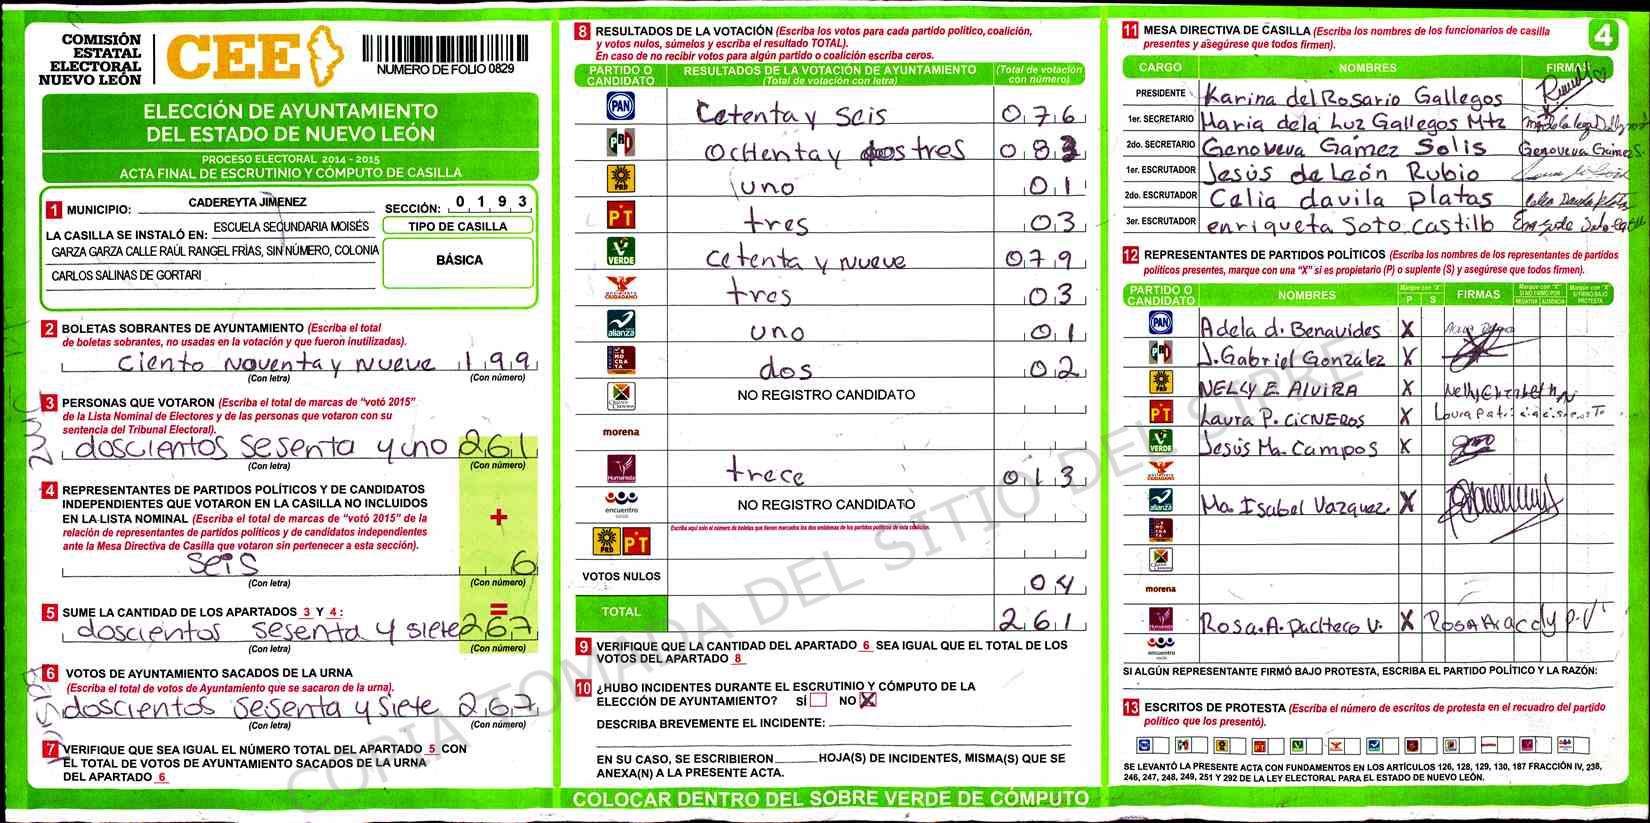 COMISIÓN
ESTATAL
ELECTORAL
NUEVO LEÓN
CEE
NUMERO DE FOLIO 0829
ELECCIÓN DE AYUNTAMIENTO
DEL ESTADO DE NUEVO LEÓN
PROCESO ELECTORAL 2014 - 2015
ACTA FINAL DE ESCRUTINIO Y CÓMPUTO DE CASILLA
1 MUNICIPIO: CADEREYTA JIMENEZ SECCIÓN: 0 1 9 3
LA CASILLA SE INSTALÓ EN: ESCUELA SECUNDARIA MOISÉS
GARZA GARZA CALLE RAÚL RANGEL FRÍAS, SIN NÚMERO, COLONIA
CARLOS SALINAS DE GORTARI
TIPO DE CASILLA
BÁSICA
2 BOLETAS SOBRANTES DE AYUNTAMIENTO (Escriba el total
de boletas sobrantes, no usadas en la votación y que fueron inutilizadas).
ciento noventa y nueve 199
(Con letra) (Con número)
3 PERSONAS QUE VOTARON (Escriba el total de marcas de “votó 2015”
de la Lista Nominal de Electores y de las personas que votaron con su
sentencia del Tribunal Electoral).
doscientos sesenta y uno 261
(Con letra) (Con número)
4 REPRESENTANTES DE PARTIDOS POLÍTICOS Y DE CANDIDATOS
INDEPENDIENTES QUE VOTARON EN LA CASILLA NO INCLUIDOS
EN LA LISTA NOMINAL (Escriba el total de marcas de “votó 2015” de la
relación de representantes de partidos políticos y de candidatos independientes
ante la Mesa Directiva de Casilla que votaron sin pertenecer a esta sección).
+
seis 6
(Con letra) (Con número)
=
5 SUME LA CANTIDAD DE LOS APARTADOS 3 Y 4 :
doscientos sesenta y siete 267
(Con letra) (Con número)
6 VOTOS DE AYUNTAMIENTO SACADOS DE LA URNA
(Escriba el total de votos de Ayuntamiento que se sacaron de la urna).
doscientos sesenta y siete 267
(Con letra) (Con número)
7 VERIFIQUE QUE SEA IGUAL EL NÚMERO TOTAL DEL APARTADO 5 CON
EL TOTAL DE VOTOS DE AYUNTAMIENTO SACADOS DE LA URNA
DEL APARTADO 6
8 RESULTADOS DE LA VOTACIÓN (Escriba los votos para cada partido político, coalición,
y votos nulos, súmelos y escriba el resultado TOTAL).
En caso de no recibir votos para algún partido o coalición escriba ceros.
PARTIDO O CANDIDATO RESULTADOS DE LA VOTACIÓN DE AYUNTAMIENTO (Total de votación con letra) (Total de votación con número)
PAN Cetenta y Seis 076
PRI ochenta y dos tres 083
PRD uno 01
PT tres 03
VERDE Cetenta y nueve 079
CIUDADANO tres 03
alianza uno 01
dos 02
NO REGISTRO CANDIDATO
morena
Humanista trece 013
encuentro social NO REGISTRO CANDIDATO
PRD PT Escriba aquí solo el número de boletas que tienen marcados los dos emblemas de los partidos políticos de esta coalición.
VOTOS NULOS 04
TOTAL 261
9 VERIFIQUE QUE LA CANTIDAD DEL APARTADO 6 SEA IGUAL QUE EL TOTAL DE LOS
VOTOS DEL APARTADO 8
10 ¿HUBO INCIDENTES DURANTE EL ESCRUTINIO Y CÓMPUTO DE LA
ELECCIÓN DE AYUNTAMIENTO? SÍ NO X
DESCRIBA BREVEMENTE EL INCIDENTE:
EN SU CASO, SE ESCRIBIERON HOJA(S) DE INCIDENTES, MISMA(S) QUE SE
ANEXA(N) A LA PRESENTE ACTA.
COLOCAR DENTRO DEL SOBRE VERDE DE CÓMPUTO
11 MESA DIRECTIVA DE CASILLA (Escriba los nombres de los funcionarios de casilla
presentes y asegúrese que todos firmen).
4
CARGO NOMBRES FIRMAS
PRESIDENTE Karina del Rosario Gallegos
1er. SECRETARIO Maria dela Luz Gallegos Mtz
2do. SECRETARIO Genoveva Gámez Solis Genoveva Gámez S.
1er. ESCRUTADOR Jesús de León Rubio
2do. ESCRUTADOR Celia davila platas
3er. ESCRUTADOR enriqueta Soto castillo
12 REPRESENTANTES DE PARTIDOS POLÍTICOS (Escriba los nombres de los representantes de partidos
políticos presentes, marque con una “X” si es propietario (P) o suplente (S) y asegúrese que todos firmen).
PARTIDO O CANDIDATO NOMBRES Marque con “X” P S FIRMAS Marque con “X” SI NO FIRMÓ POR NEGATIVA AUSENCIA Marque con “X” SI FIRMÓ BAJO PROTESTA
PAN Adela d. Benavides X
PRI J. Gabriel Gonzalez X
PRD NELLY E AlviRA X
PT Laura P. CiCNEROS X
VERDE Jesús Ma. Campos X
alianza Ma. Isabel Vazquez X
morena
Humanista Rosa. A. pacheco V. X
encuentro social
SI ALGÚN REPRESENTANTE FIRMÓ BAJO PROTESTA, ESCRIBA EL PARTIDO POLÍTICO Y LA RAZÓN:
13 ESCRITOS DE PROTESTA (Escriba el número de escritos de protesta en el recuadro del partido
político que los presentó).
SE LEVANTÓ LA PRESENTE ACTA CON FUNDAMENTOS EN LOS ARTÍCULOS 126, 128, 129, 130, 187 FRACCIÓN IV, 238,
246, 247, 248, 249, 251 Y 292 DE LA LEY ELECTORAL PARA EL ESTADO DE NUEVO LEÓN.
COPIA TOMADA DEL SITIO DEL SIPRE